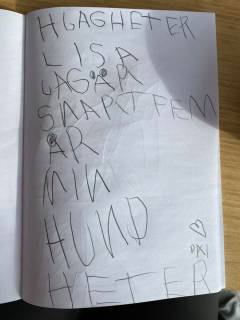 HGAGHETER
LISA
GAGÄR
SNAPTFEM
ÅR
MIN
HUND
HETER